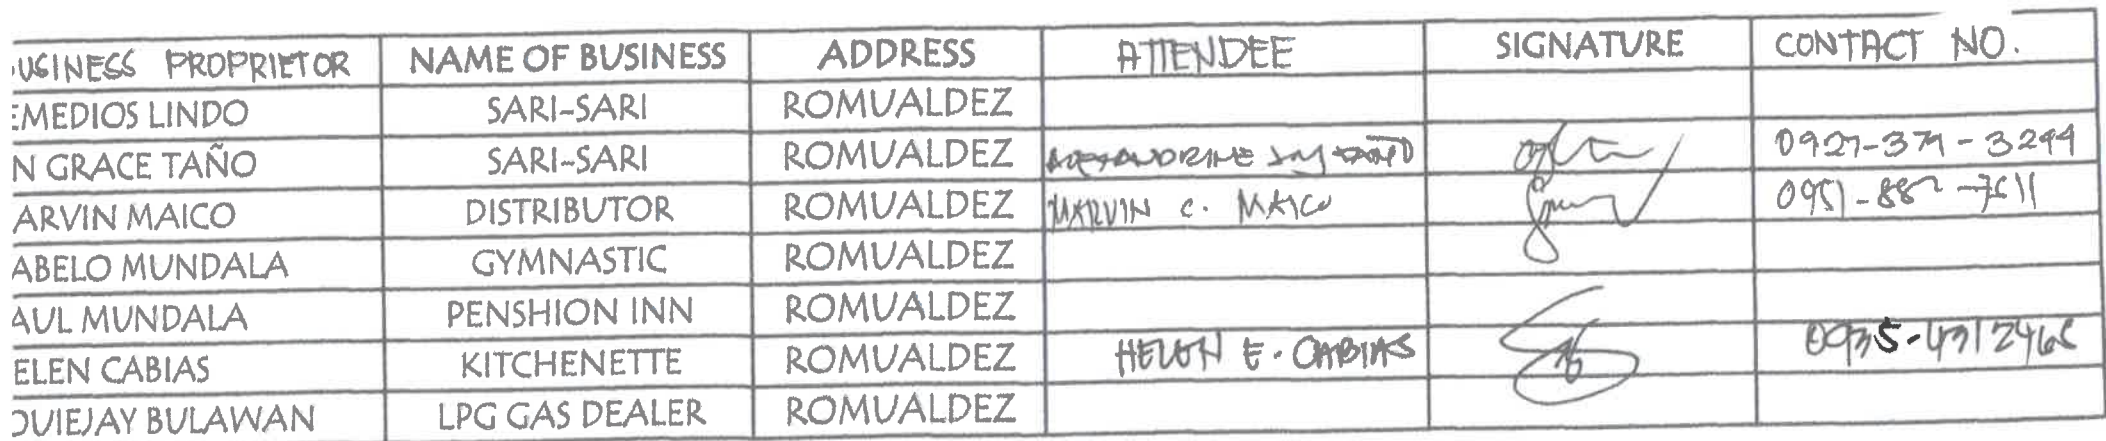 USINESS PROPRIETOR NAME OF BUSINESS ADDRESS ATTENDEE SIGNATURE CONTACT NO.
EMEDIOS LINDO SARI-SARI ROMUALDEZ
N GRACE TAÑO SARI-SARI ROMUALDEZ TAÑO 0927-371-3299
ARVIN MAICO DISTRIBUTOR ROMUALDEZ MARVIN C. MAICO
ABELO MUNDALA GYMNASTIC ROMUALDEZ
AUL MUNDALA PENSHION INN ROMUALDEZ
ELEN CABIAS KITCHENETTE ROMUALDEZ HELEN E. CABIAS
OUIEJAY BULAWAN LPG GAS DEALER ROMUALDEZ